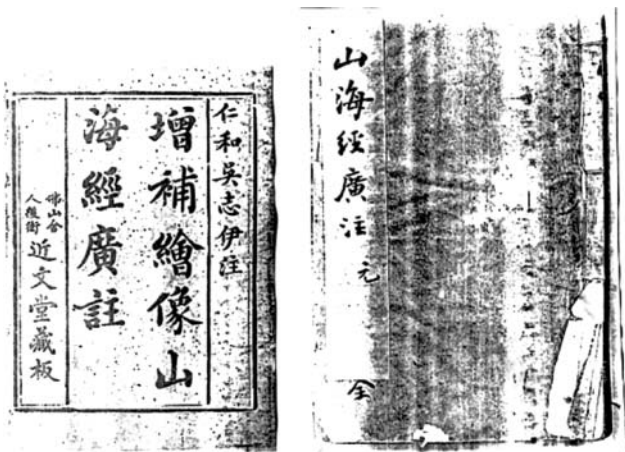 仁和吳志伊注
增補繪像山
海經廣註
佛山舍
人後街
近文堂藏板
山海經廣注 元
全